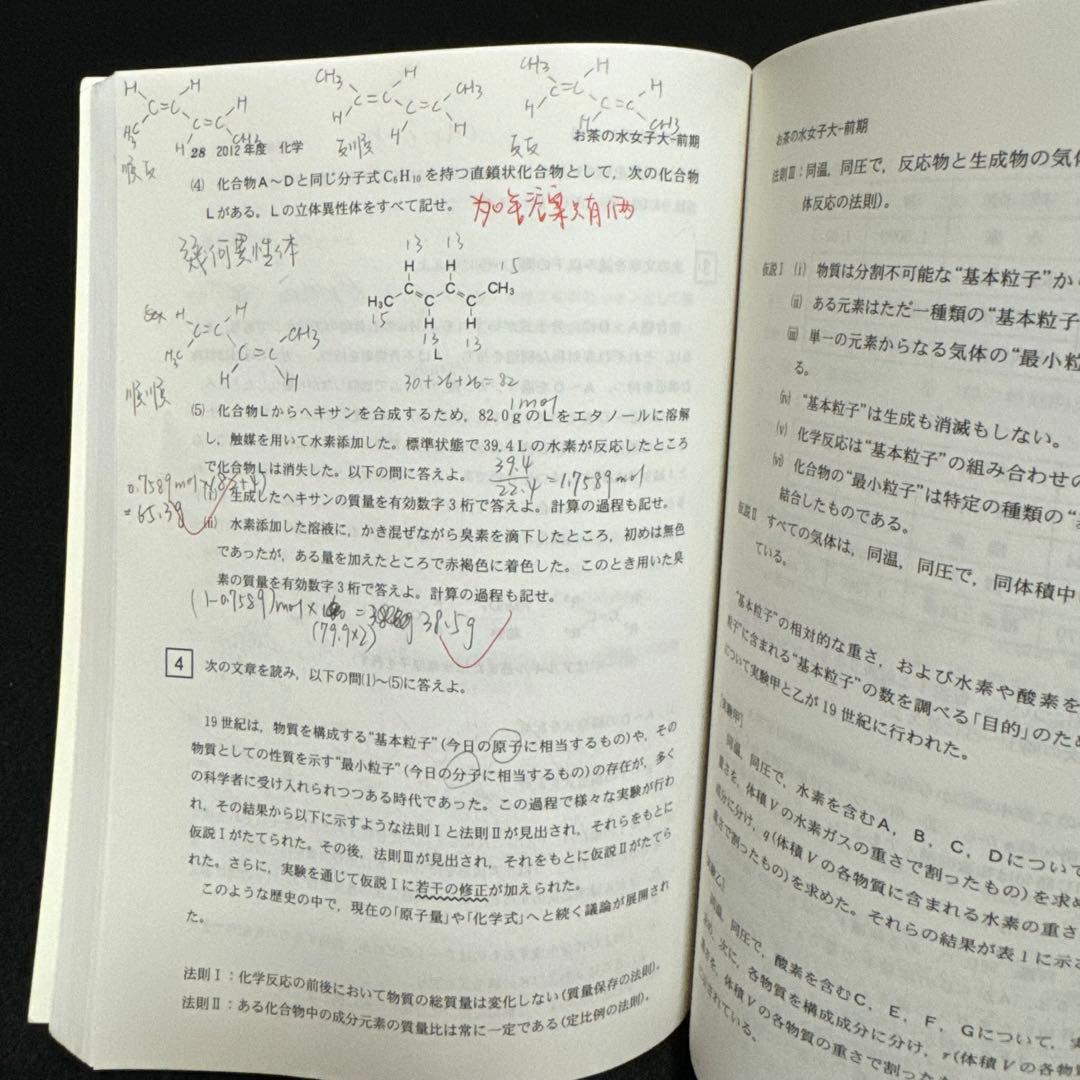 CH₃ H CH₃
H C=C H C=C CH₃ C=C H
H₃C C=C H C=C C=C
H CH₃ H H H CH₃
順反 反順 反反
28 2012年度 化学 お茶の水女子大-前期
(4) 化合物A〜Dと同じ分子式C₆H₁₀を持つ直鎖状化合物として，次の化合物
Lがある。Lの立体異性体をすべて記せ。
幾何異性体
13 13
H H 15
C C CH₃
H₃C C C
15 H H
13 13
L
30+26+26=82
H C=C H
H₃C C=C CH₃
H H
順順
(5) 化合物Lからヘキサンを合成するため，82.0gのLをエタノールに溶解
1mol
し，触媒を用いて水素添加した。標準状態で39.4Lの水素が反応したところ
で化合物Lは消失した。以下の問に答えよ。
39.4/22.4=1.7589mol
生成したヘキサンの質量を有効数字3桁で答えよ。計算の過程も記せ。
0.7589mol×(82+4)
=65.3g
(ii) 水素添加した溶液に，かき混ぜながら臭素を滴下したところ，初めは無色
であったが，ある量を加えたところで赤褐色に着色した。このとき用いた臭
素の質量を有効数字3桁で答えよ。計算の過程も記せ。
(1-0.7589)mol×
(79.9×2) 38.5g
4 次の文章を読み，以下の問(1)〜(5)に答えよ。
19世紀は，物質を構成する“基本粒子”(今日の原子に相当するもの)や，その
物質としての性質を示す“最小粒子”(今日の分子に相当するもの)の存在が，多く
の科学者に受け入れられつつある時代であった。この過程で様々な実験が行わ
れ，その結果から以下に示すような法則Ⅰと法則Ⅱが見出され，それらをもとに
仮説Ⅰがたてられた。その後，法則Ⅲが見出され，それをもとに仮説Ⅱがたてら
れた。さらに，実験を通じて仮説Ⅰに若干の修正が加えられた。
このような歴史の中で，現在の「原子量」や「化学式」へと続く議論が展開され
た。
法則Ⅰ：化学反応の前後において物質の総質量は変化しない(質量保存の法則)。
法則Ⅱ：ある化合物中の成分元素の質量比は常に一定である(定比例の法則)。
お茶の水女子大-前期
法則Ⅲ：同温，同圧で，反応物と生成物の気体
体反応の法則)。
仮説Ⅰ (i) 物質は分割不可能な“基本粒子”か
(ii) ある元素はただ一種類の“基本粒子
(iii) 単一の元素からなる気体の“最小粒
る。
(iv) “基本粒子”は生成も消滅もしない。
(v) 化学反応は“基本粒子”の組み合わせの
(vi) 化合物の“最小粒子”は特定の種類の“基
結合したものである。
仮説Ⅱ すべての気体は，同温，同圧で，同体積中に
ている。
“基本粒子”の相対的な重さ，および水素や酸素を
粒子”に含まれる“基本粒子”の数を調べる「目的」のため
について実験甲と乙が19世紀に行われた。
[実験甲]
同温，同圧で，水素を含むA，B，C，Dについて
重さを，体積Vの水素ガスの重さで割ったもの)を求め
成分に分け，q(体積Vの各物質に含まれる水素の重さ
重さで割ったもの)を求めた。それらの結果が表1に示さ
[実験乙]
同温，同圧で，酸素を含むC，E，F，Gについて，実
め，次に，各物質を構成成分に分け，r(体積Vの各物
重さを，体積Vの各物質の重さで割った
に示されている。